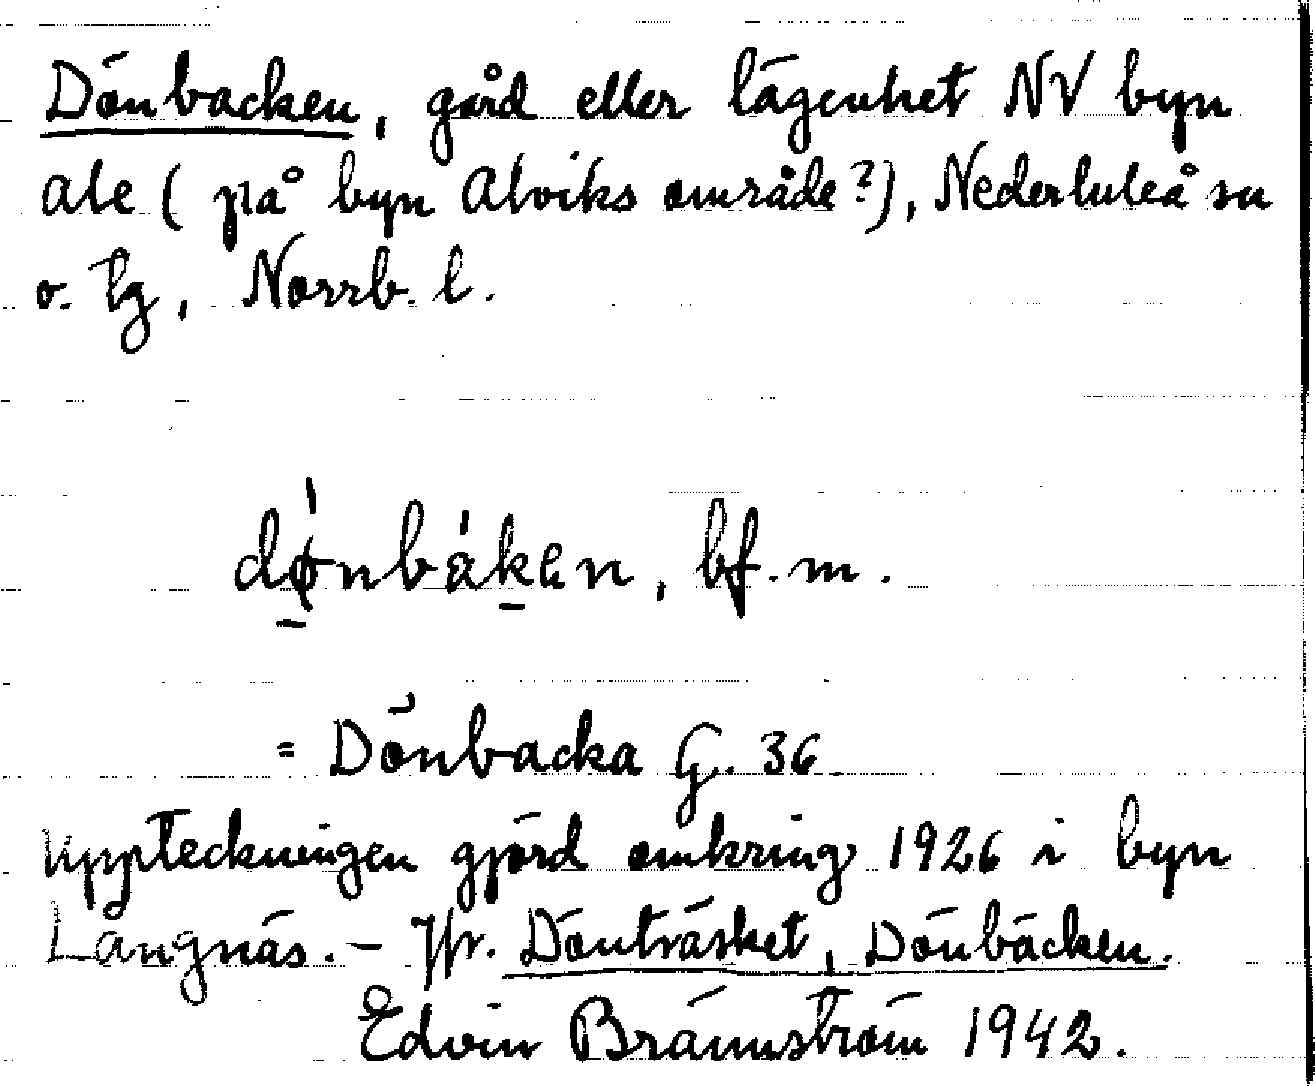 Dönbacken, gård eller lägenhet NV byn
Ale (på byn Alviks område?), Nederluleå sn
o. tg, Norrb. l.
dø̀nbàkan, bf. m.
= Dönbacka G. 36.
Uppteckningen gjord omkring 1926 i byn
Långnäs. – Jfr. Dönträsket, Dönbäcken.
Edvin Brännström 1942.